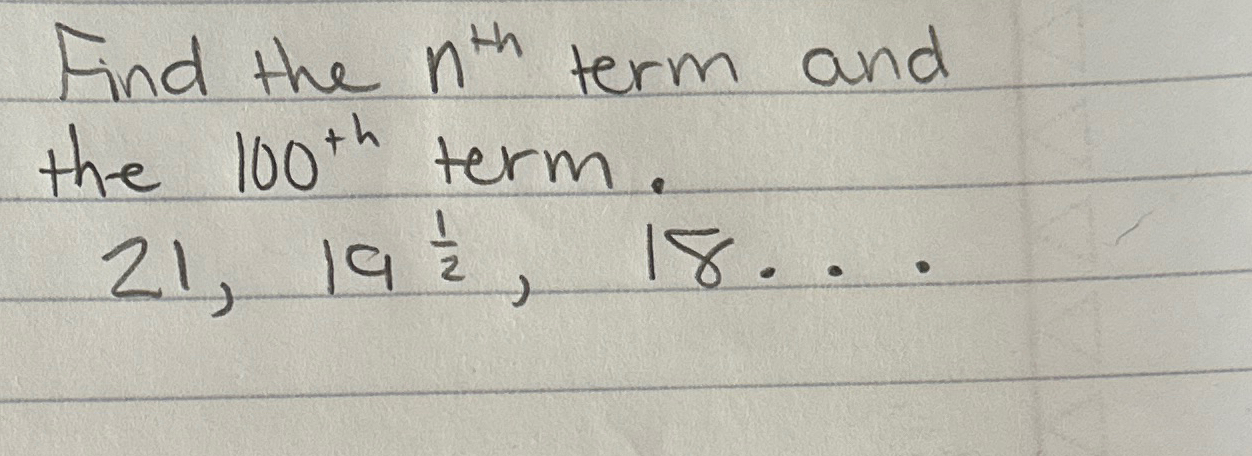 Find the nth term and
the 100th term.
21, 19 1/2, 18...